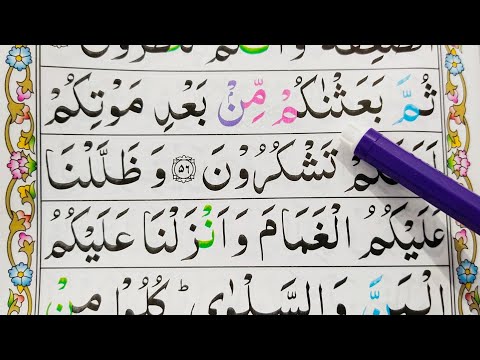 وَاَنْتُمْ تَنْظُرُوْنَ
ثُمَّ بَعَثْنٰكُمْ مِّنْۢ بَعْدِ مَوْتِكُمْ
لَعَلَّكُمْ تَشْكُرُوْنَ ﴿۵۶﴾ وَ ظَلَّلْنَا
عَلَيْكُمُ الْغَمَامَ وَاَنْزَلْنَا عَلَيْكُمُ
الْمَنَّ وَالسَّلْوٰى ؕ كُلُوْا مِنْ